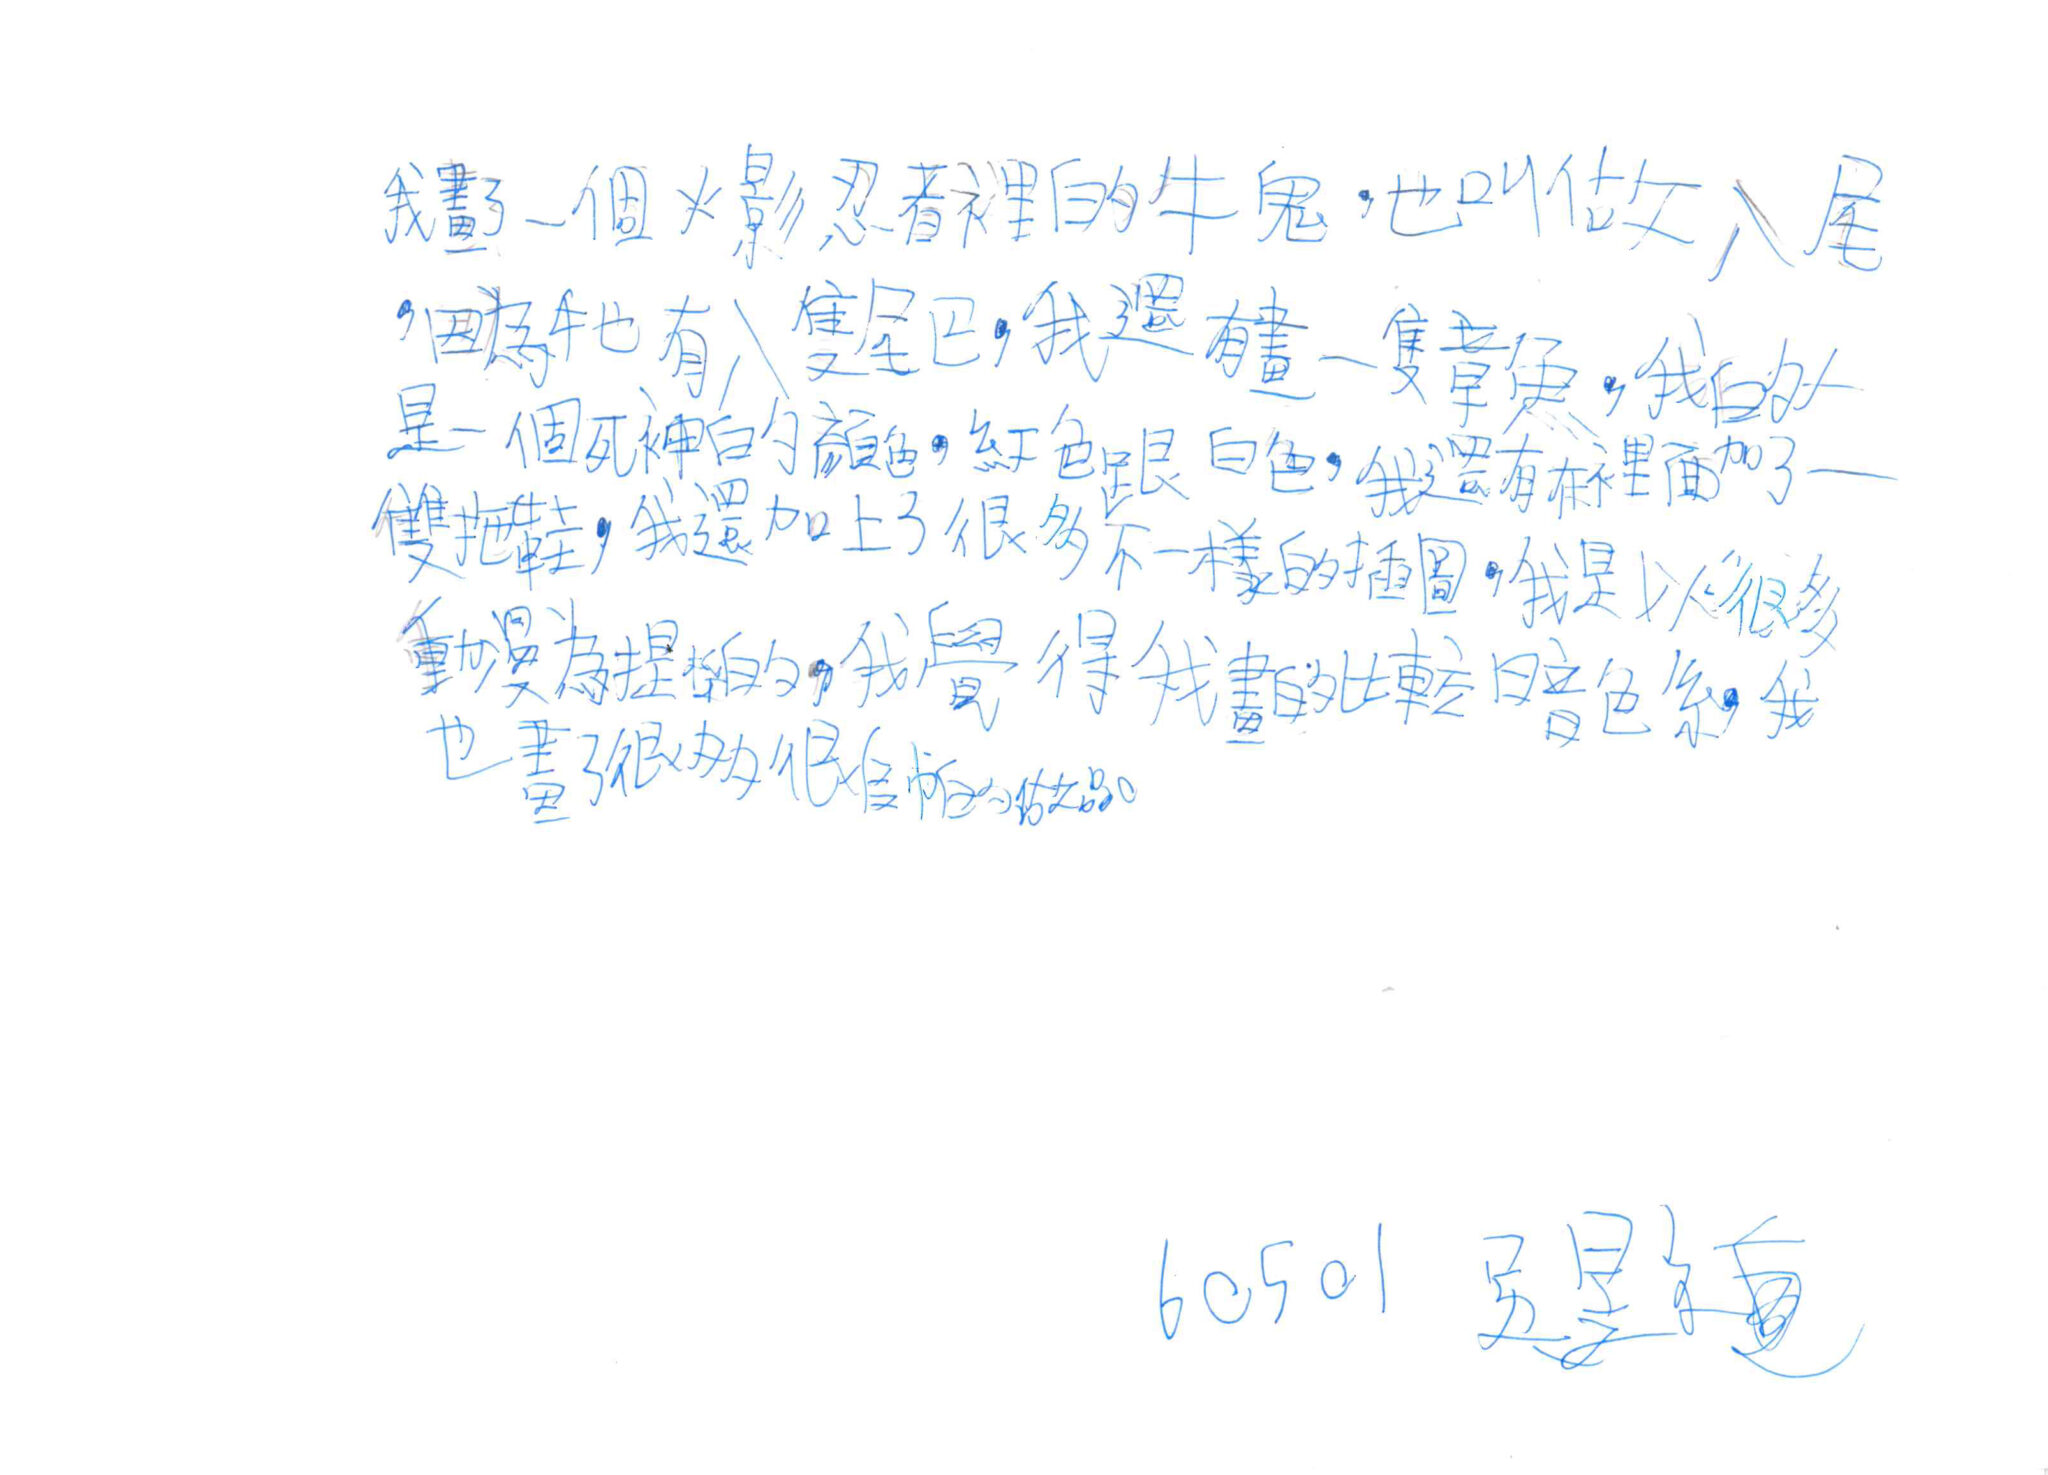 我畫了一個火影忍者裡的牛鬼,也叫做八尾
,因為牠有八隻尾巴,我還有畫一隻章魚,我的外
是一個死神的顏色,紅色跟白色,我還有在裡面加了一
雙拖鞋,我還加上了很多不一樣的插圖,我是以很多
動漫為提的,我覺得我畫的比較暗色系,我
也畫了很多很奇怪的做品。
60501